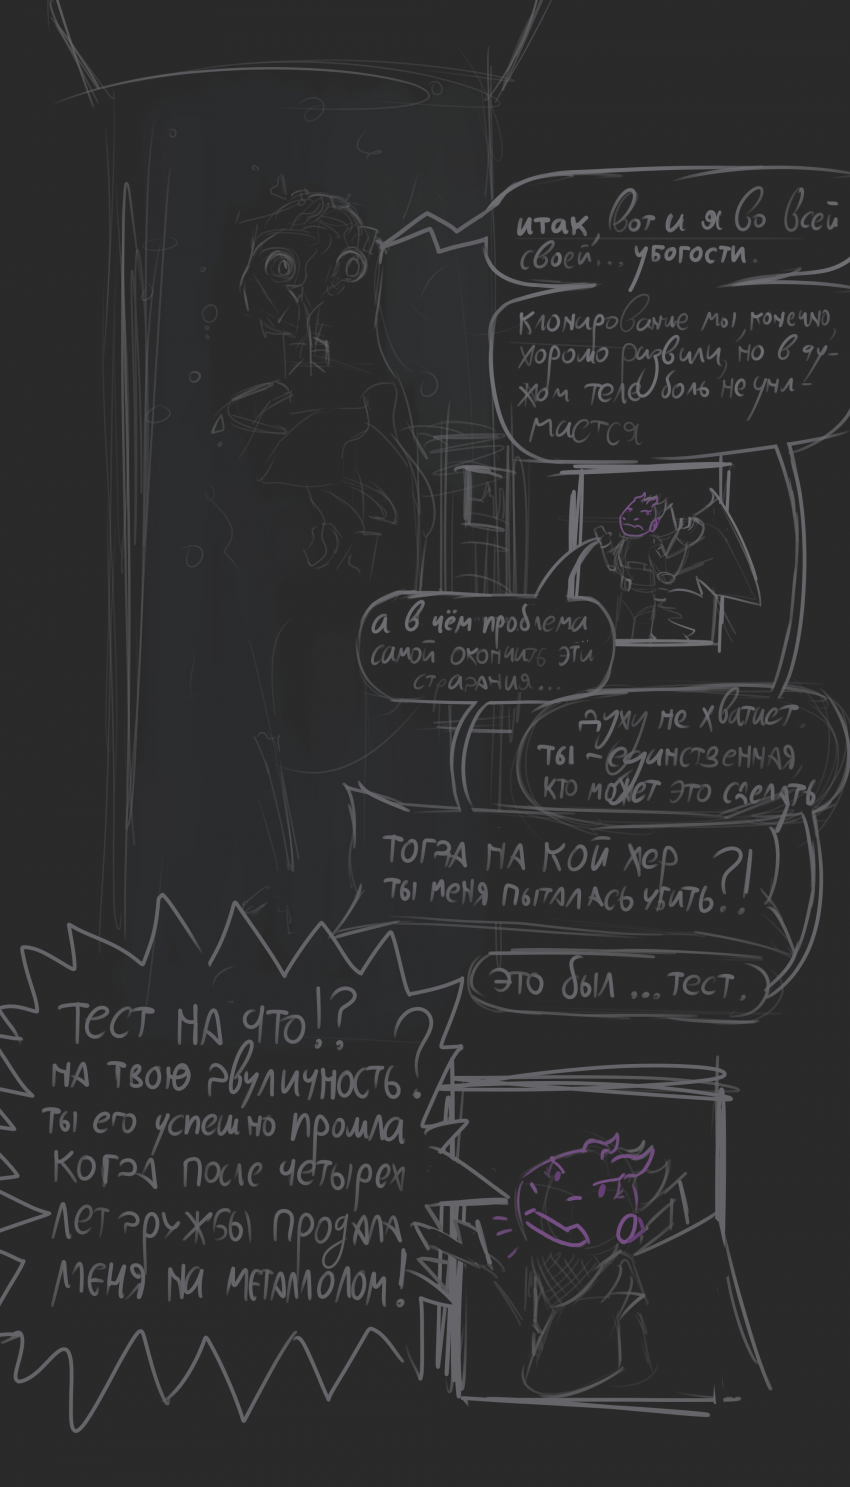 итак, вот и я во всей
своей... убогости.
Клонирование мы, конечно,
хорошо развили, но в чу-
жом теле боль не уни-
мается
а в чём проблема
самой окончить эти
страдания...
духу не хватает.
ты - единственная,
кто может это сделать
тогда на кой хер
ты меня пыталась убить?!
это был ... тест.
тест на что!?
на твою двуличность?
ты его успешно прошла
когда после четырех
лет дружбы продала
меня на металлолом!